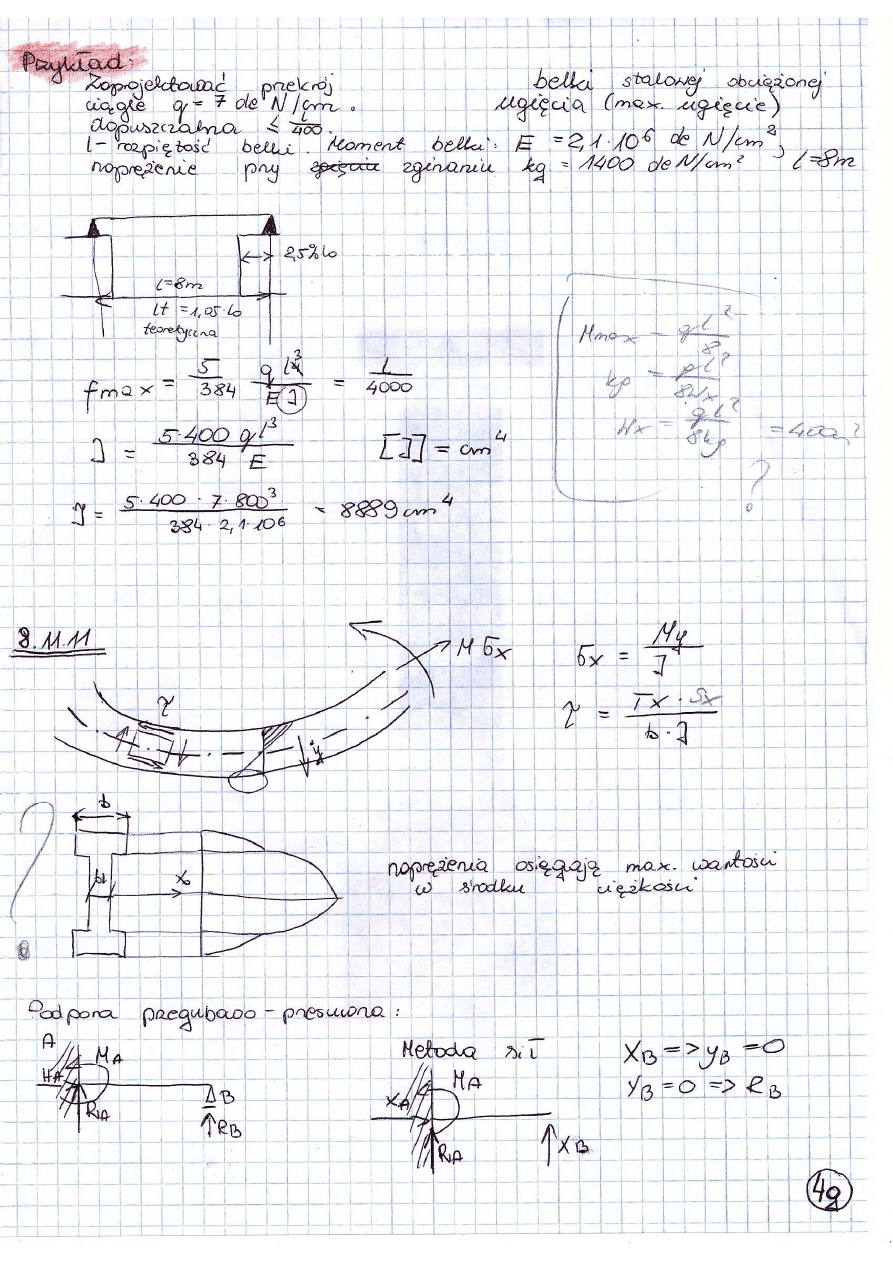 Przykład:
Zaprojektować przekrój belki stalowej obciążonej
ciągle q = 7 de N/cm. ugięcia (max. ugięcie)
dopuszczalna ≤ l/400.
l - rozpiętość belki. Moment belki: E = 2,1·10⁶ de N/cm²,
naprężenie pry zginaniu kg = 1400 de N/cm² l=8m
2,5% lo
l=8m
lt = 1,05·lo
teoretyczna
fmax = 5/384 ql³/EJ = 1/4000
J = 5·400 ql³/384 E [J] = cm⁴
J = 5·400·7·800³/384·2,1·10⁶ = 8889 cm⁴
Mmax = ql²/8
kg = ql²/8Wx
Wx = ql²/8kg = 400
?
8.11.11
M бx
бx = My/J
τ
τ = Tx·Sx/b·J
y
b
?
b1
x₀
naprężenia osiągają max. wartości
w środku ciężkości
Podpora przegubowo - presuwna:
A
MA
HA
RA
ΔB
RB
Metoda sił
MA
XA
RA
XB
XB => yB = 0
YB = 0 => RB
4g